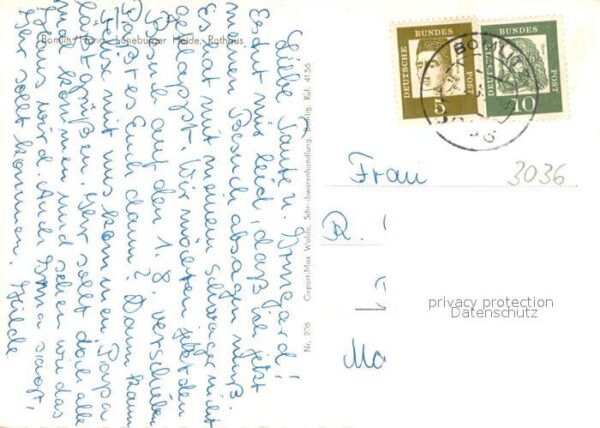 Bomlitz Hann. Lüneburger Heide, Rathaus
Liebe Tante u. Irmgard!
Es tut mir leid, daß ich jetzt
meinen Besuch absagen muß.
Es hat mit meinem Schwager nicht
geklappt. Wir möchten jetzt den
Besuch auf den 1.8. verschieben
Paßt es Euch dann? Dann kann
mit uns kommen. Papa
läßt grüßen. Ihr sollt doch alle
mal kommen und sehen wie das
Haus wird. Auch Oma sagt,
Ihr sollt kommen. Hilde
Nr. 236
Cuport-Max Walda, Schreibwarenhandlung, Bomlitz, Ruf: 4156
DEUTSCHE BUNDES POST
5
DEUTSCHE BUNDES POST
10
BOMLITZ
3036
Frau
R.
Ma
privacy protection
Datenschutz